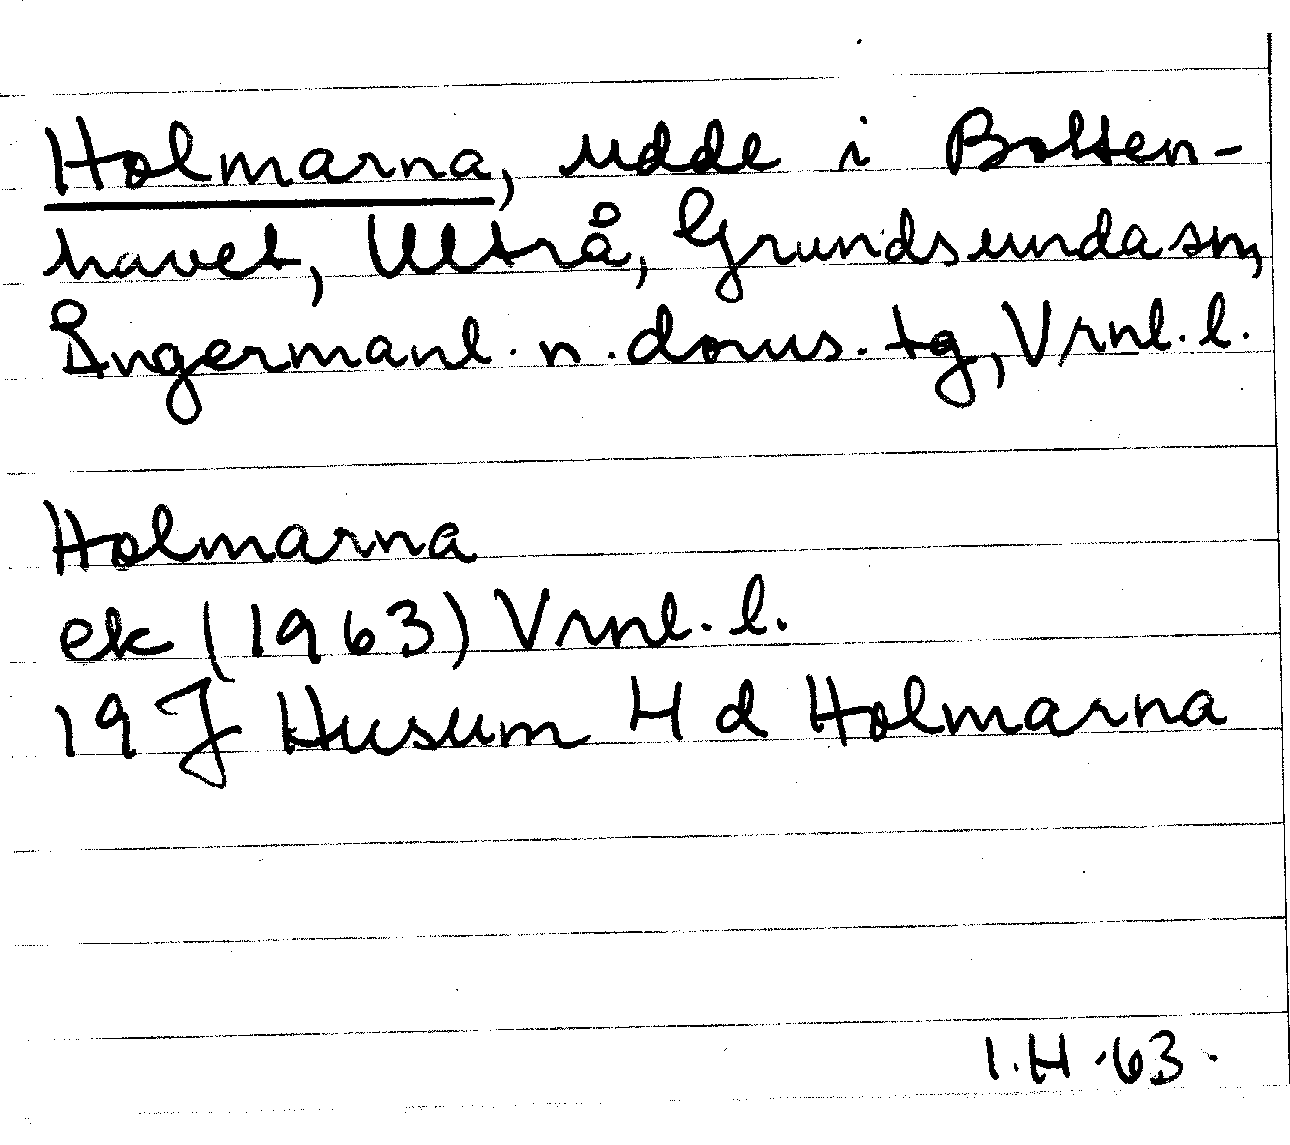 Holmarna, udde i Botten-
havet, Ultrå, Grundsunda sn,
Ångermanl. n. doms. tg, Vrnl. l.
Holmarna
ek (1963) Vrnl. l.
19 J Husum H d Holmarna
I.H. 63.